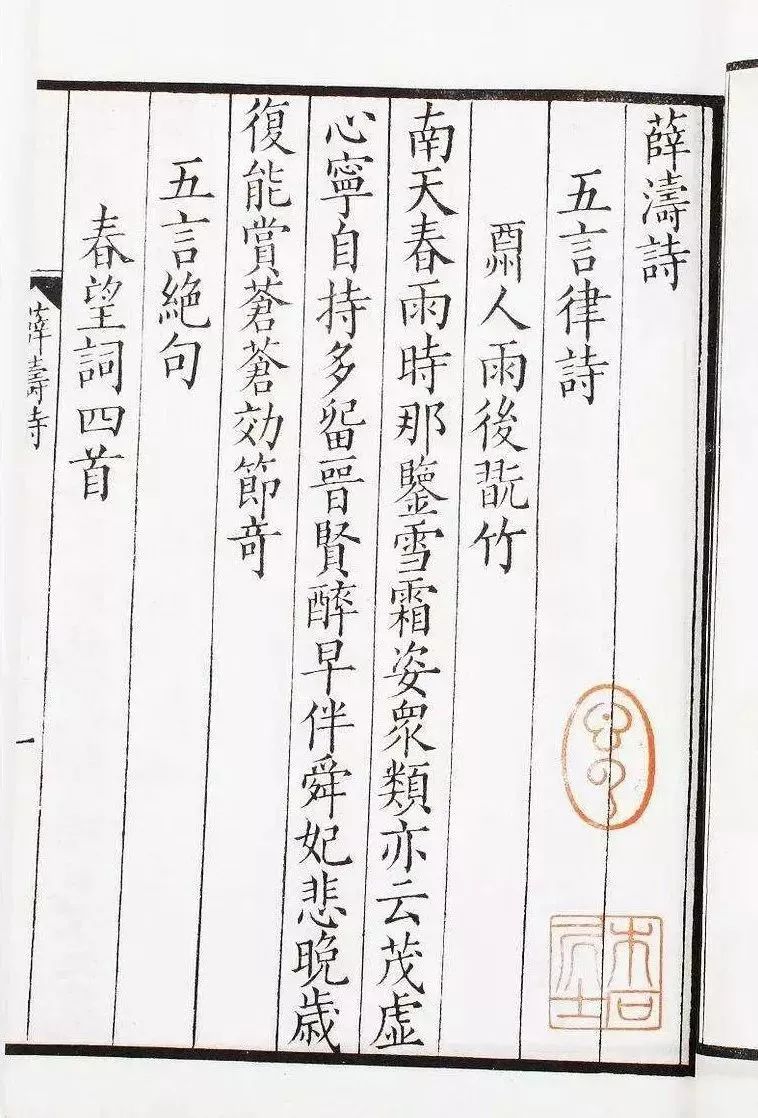 薛濤詩
五言律詩
酬人雨後翫竹
南天春雨時那鑒雪霜姿衆類亦云茂虛
心寧自持多留晉賢醉早伴舜妃悲晚歲
復能賞蒼蒼効節竒
五言絶句
春望詞四首
薛濤詩
一